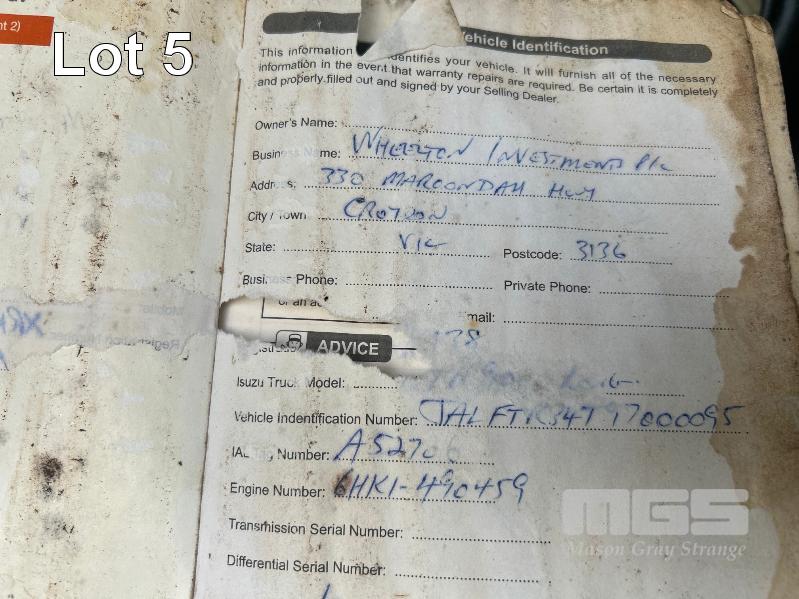 nt 2)
Lot 5
Vehicle Identification
This information identifies your vehicle. It will furnish all of the necessary
information in the event that warranty repairs are required. Be certain it is completely
and properly filled out and signed by your Selling Dealer.
Owner's Name:
Business Name: WHEELTON INVESTMENTS P/L
Address: 330 MAROONDAH HWY
City / Town CROYDON
State: VIC Postcode: 3136
Business Phone: Private Phone:
or an a
mail:
ADVICE
Isuzu Truck Model: Long
Vehicle Indentification Number: JALFTR34T97000095
IAL Tag Number: A52706
Engine Number: 6HK1-490459
MGS
Transmission Serial Number:
Mason Gray Strange
Differential Serial Number: